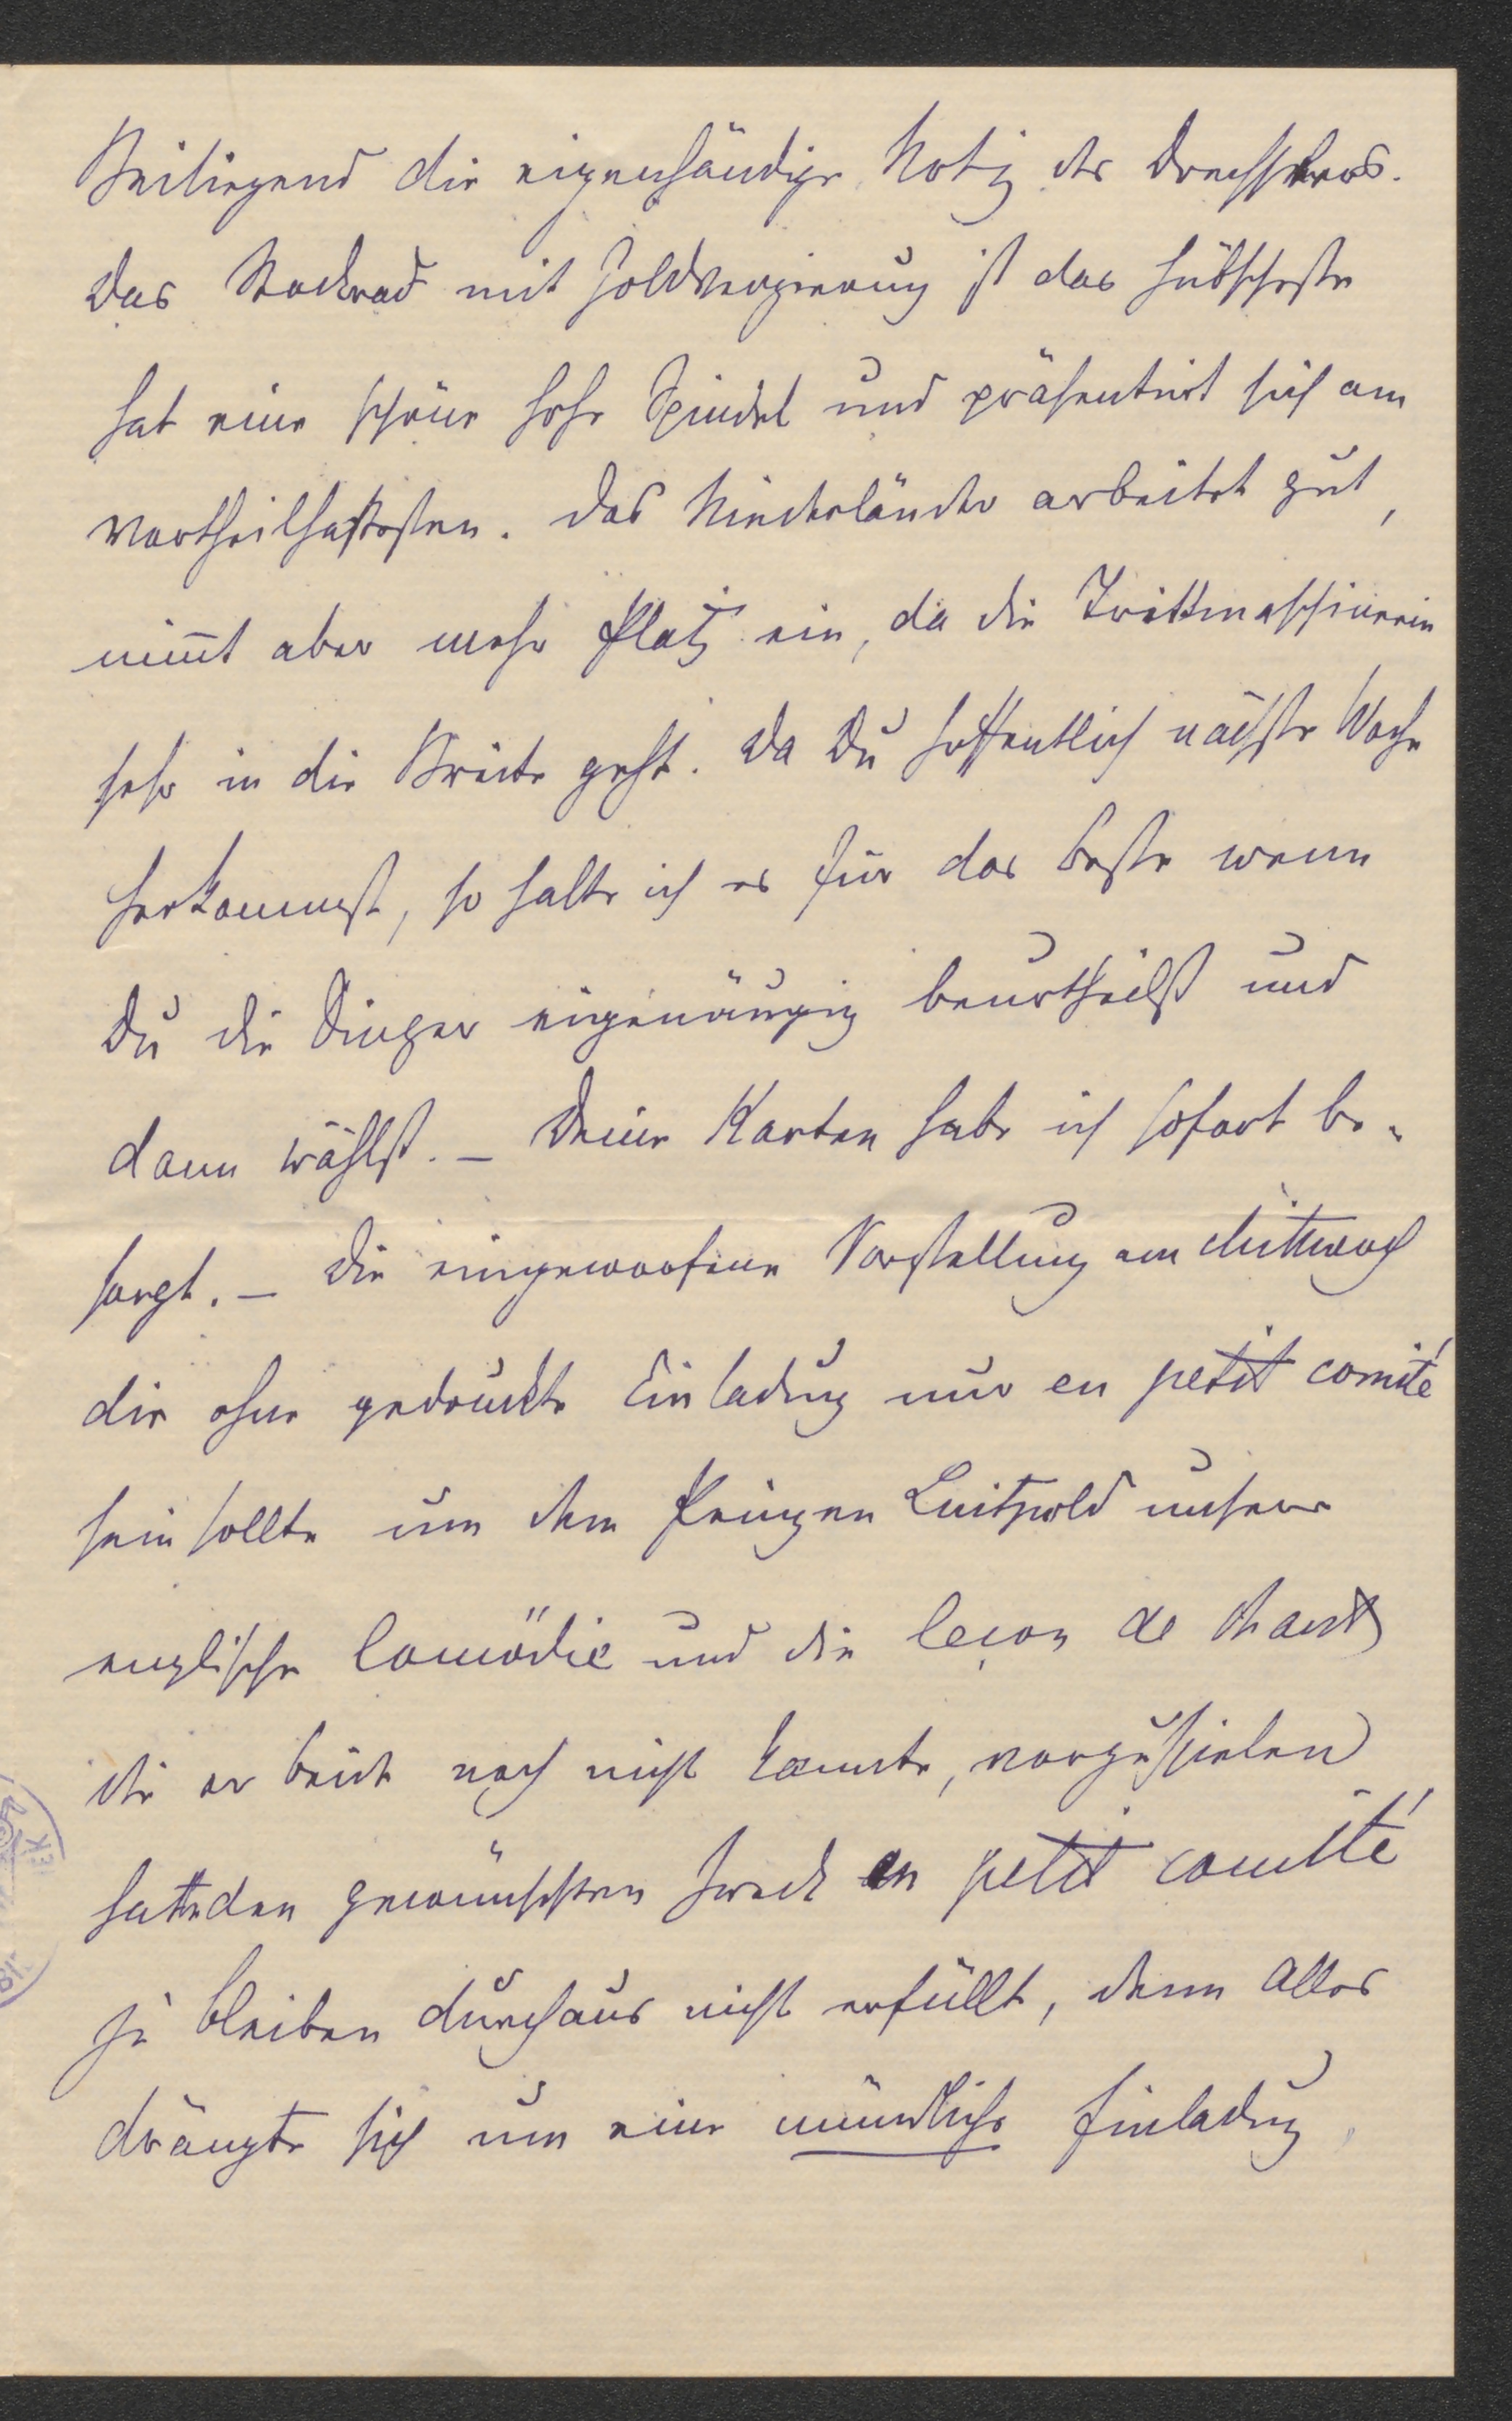 Beiliegend die eigenhändige Notiz des Drechslers.
Das Stockrad mit Goldverzierung ist das hübscheste
hat eine schöne hohe Spindel und präsentirt sich am
vortheilhaftesten. Das Niederländer arbeitet gut,
nim̄t aber mehr Platz ein, da die Trittmaschinerie
sehr in die Breite geht. Da Du hoffentlich nächste Woche
herkommst, so halte ich es für das beste wenn
Du die Dinger eigenäugig beurtheilst und
dann wählst. – Deine Karten habe ich sofort be-
sorgt. – Die eingeworfene Vorstellung am Mittwoch
die ohne gedruckte Einladung nur en petit comité
sein sollte um dem Prinzen Luitpold unsere
englische Comödie und die leçon de chant
die er beide noch nicht kannte, vorzuspielen
hatte den gewünschten Zweck en petit comité
zu bleiben durchaus nicht erfüllt, denn Alles
drängte sich um eine mündliche Einladung,